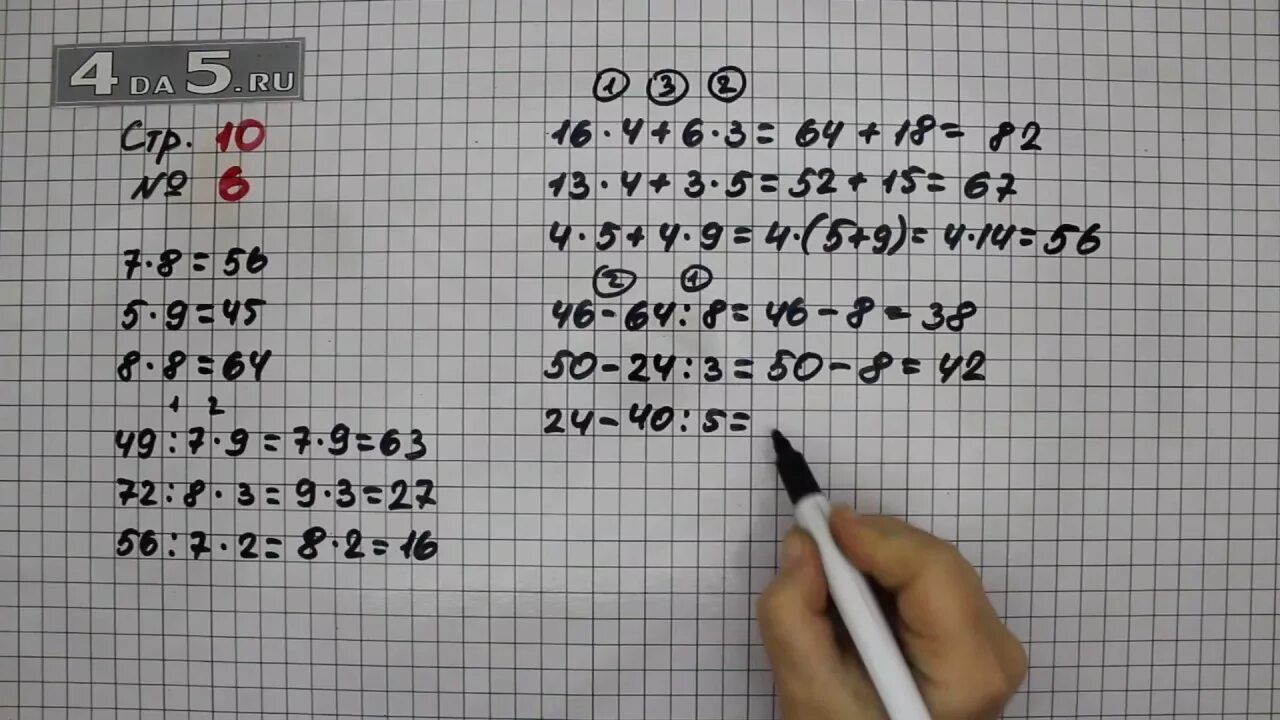 4DA5.RU
Стр. 10
№ 6
7·8=56
5·9=45
8·8=64
1 2
49:7·9=7·9=63
72:8·3=9·3=27
56:7·2=8·2=16
1 3 2
16·4+6·3=64+18=82
13·4+3·5=52+15=67
4·5+4·9=4·(5+9)=4·14=56
2 1
46-64:8=46-8=38
50-24:3=50-8=42
24-40:5=